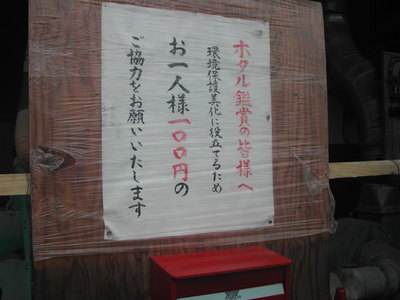 ホタル鑑賞の皆様へ
環境保護美化に役立てるため
お一人様一〇〇円の
ご協力をお願いいたします